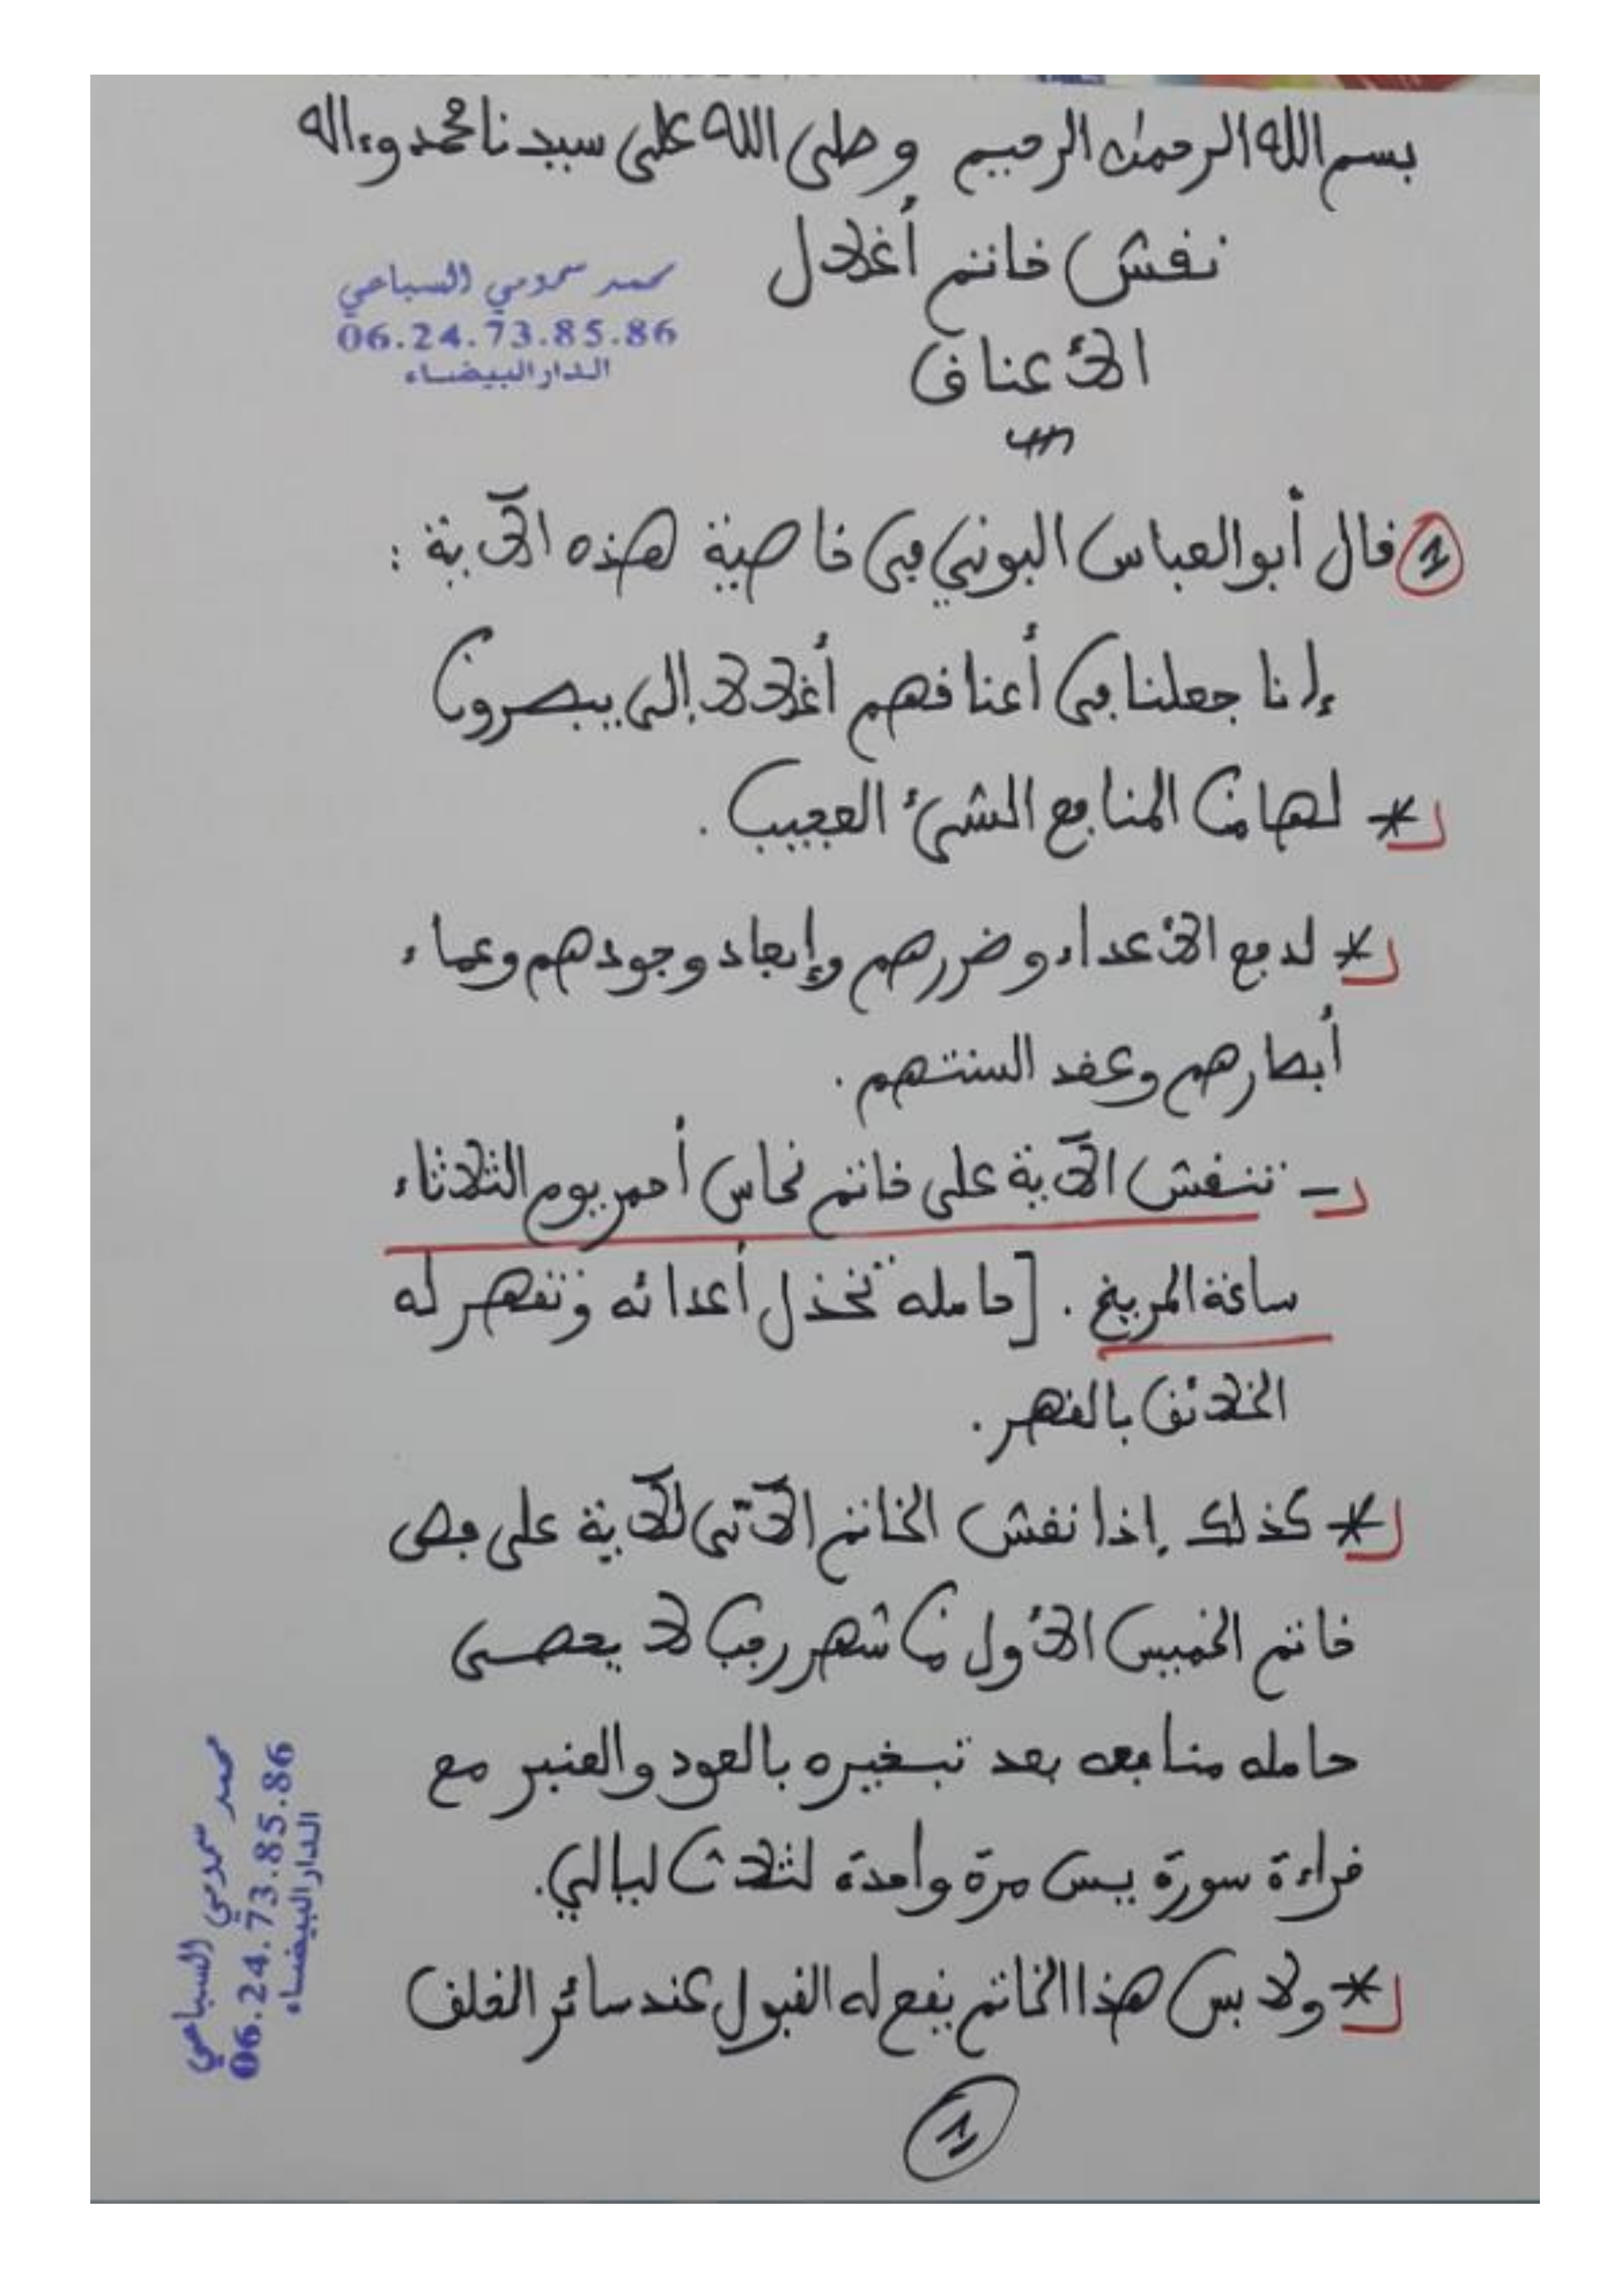 بسم الله الرحمن الرحيم وصلى الله على سيدنا محمد وءاله
نقش خاتم أغلال
الأعناق
محمد سمومي السباعي
06.24.73.85.86
الدار البيضاء
1 قال أبو العباس البوني في خاصية هذه الآية :
إنا جعلنا في أعناقهم أغلالا إلى يبصرون
* لها من المنافع الشيئ العجيب .
* لدفع الأعداء وضررهم وإبعاد وجودهم وعماء
أبصارهم وعقد السنتهم .
- تنقش الآية على خاتم نحاس أحمر يوم الثلاثاء
ساعة المريخ . [حامله تخذل أعدائه وتقهر له
الخلائق بالقهر .
* كذلك إذا نقش الخاتم الآتي للآية على فص
خاتم الخميس الأول من شهر رجب لا يحصى
حامله منافعه بعد تبخيره بالعود والعنبر مع
قراءة سورة يس مرة واحدة لثلاث ليالي.
* ولابس هذا الخاتم يقع له القبول عند سائر الخلق
1
محمد سمومي السباعي
06.24.73.85.86
الدار البيضاء